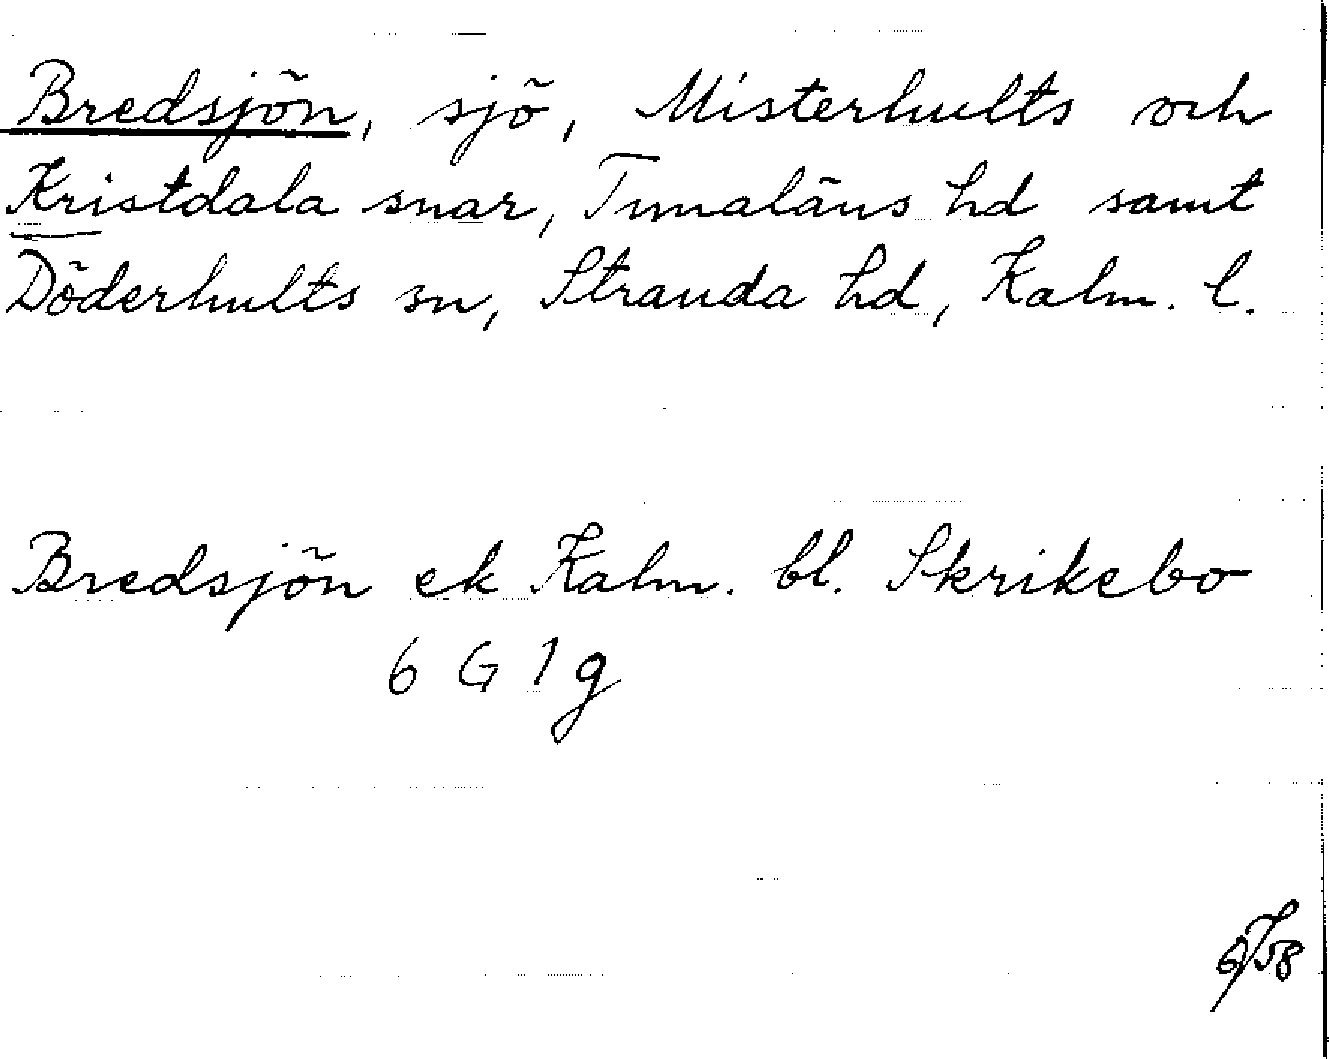 Bredsjön, sjö, Misterhults och
Kristdala snar, Tunaläns hd samt
Döderhults sn, Stranda hd, Kalm. l.
Bredsjön ek Kalm. bl. Skrikebo
6 G 1 g